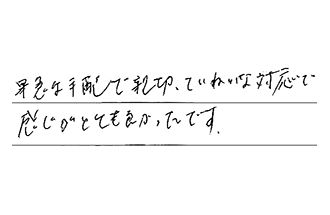 早急な手配で親切、ていねいな対応で
感じがとても良かったです。